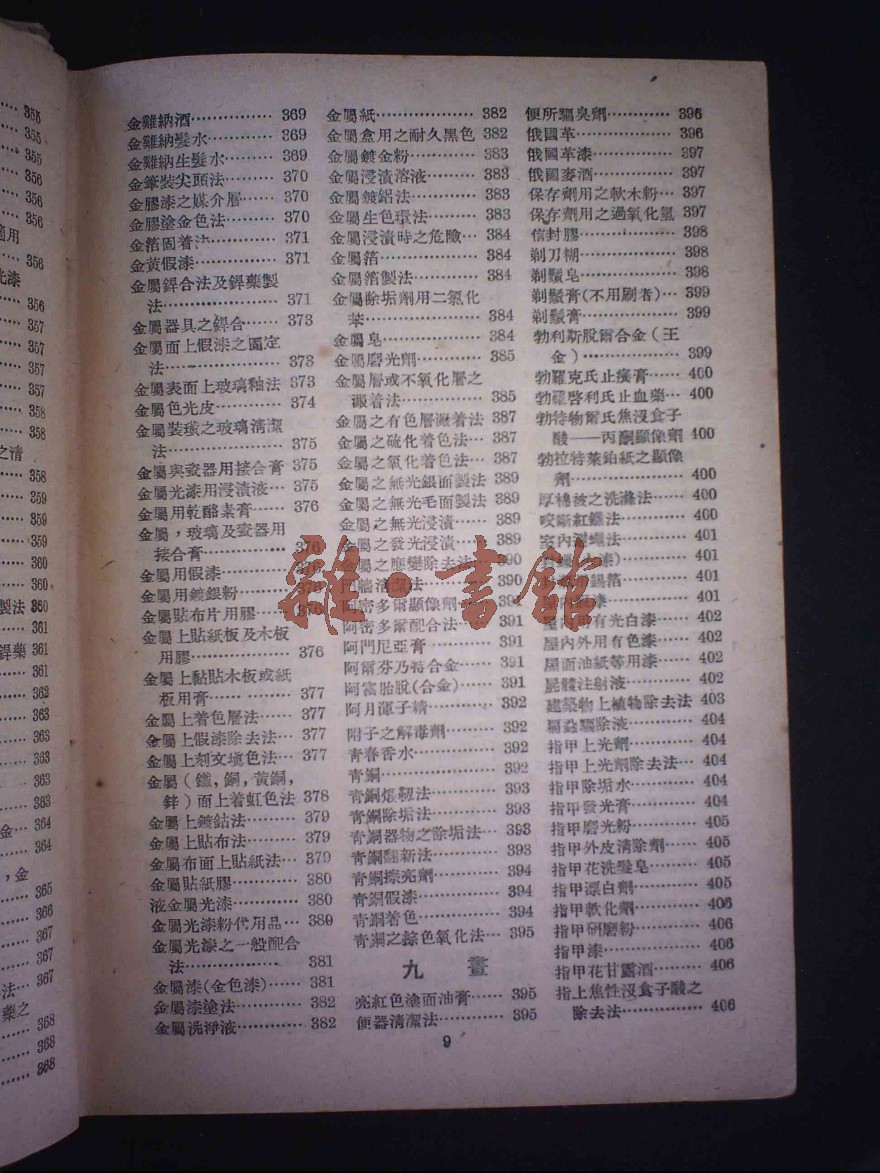 355
355
355
356
356
356
適用
356
光漆
356
357
357
357
357
358
358
之清
358
359
359
359
360
360
製法 360
361
銲藥 361
361
362
363
363
363
363
364
364
，金
365
366
367
367
法… 367
藥之
368
368
368
金雞納酒…………… 369
金雞納髮水………… 369
金雞納生髮水……… 369
金筆裝尖頭法……… 370
金膠漆之媒介層…… 370
金膠塗金色法……… 370
金箔固着法………… 371
金黃假漆…………… 371
金屬銲合法及銲藥製
法………………… 371
金屬器具之銲合…… 373
金屬面上假漆之固定
法………………… 373
金屬表面上玻璃釉法 373
金屬色光皮………… 374
金屬裝璜之玻璃清潔
法………………… 375
金屬與瓷器用接合膏 375
金屬光漆用浸漬液… 375
金屬用乾酪素膏…… 376
金屬，玻璃及瓷器用
接合膏…………… 376
金屬用假漆………… 376
金屬用鍍銀粉……… 376
金屬貼布片用膠…… 376
金屬上貼紙板及木板
用膠……………… 376
金屬上黏貼木板或紙
板用膏…………… 377
金屬上着色層法…… 377
金屬上假漆除去法… 377
金屬上刻文填色法… 377
金屬（鐵，銅，黃銅，
鋅）面上着虹色法 378
金屬上鍍鈷法……… 379
金屬上貼布法……… 379
金屬布面上貼紙法… 379
金屬貼紙膠………… 380
液金屬光漆………… 380
金屬光漆粉代用品… 380
金屬光漆之一般配合
法………………… 381
金屬漆(金色漆)…… 381
金屬漆塗法………… 382
金屬洗淨液………… 382
金屬紙……………… 382
金屬盒用之耐久黑色 382
金屬鍍金粉………… 383
金屬浸漬溶液……… 383
金屬鍍鋁法………… 383
金屬生色環法……… 383
金屬浸漬時之危險… 384
金屬箔……………… 384
金屬箔製法………… 384
金屬除垢劑用二氯化
苯………………… 384
金屬皂……………… 384
金屬磨光劑………… 385
金屬層或不氧化層之
澱着法…………… 385
金屬之有色層澱着法 387
金屬之硫化着色法… 387
金屬之氧化着色法… 387
金屬之無光銀面製法 389
金屬之無光毛面製法 389
金屬之無光浸漬…… 389
金屬之發光浸漬…… 389
金屬之應變除去法… 390
清潔法…… 390
阿密多爾顯像劑…… 391
阿密多爾配合法…… 391
阿門尼亞膏………… 391
阿爾芬乃特合金…… 391
阿富胎脫(合金)…… 391
阿月渾子精………… 392
附子之解毒劑……… 392
青春香水…………… 392
青銅………………… 392
青銅煅靭法………… 393
青銅除垢法………… 393
青銅器物之除垢法… 393
青銅翻新法………… 393
青銅擦亮劑………… 394
青銅假漆…………… 394
青銅着色…………… 394
青銅之棕色氧化法… 395
九 畫
亮紅色塗面油膏…… 395
便器清潔法………… 395
便所驅臭劑………… 396
俄國革……………… 396
俄國革漆…………… 397
俄國麥酒…………… 397
保存劑用之軟木粉… 397
保存劑用之過氧化氫 397
信封膠……………… 398
剃刀糊……………… 398
剃鬚皂……………… 398
剃鬚膏(不用刷者)… 399
剃鬚膏……………… 399
勃利斯脫爾合金（王
金）……………… 399
勃羅克氏止癢膏…… 400
勃羅啓利氏止血藥… 400
勃特物爾氏焦沒食子
酸——丙酮顯像劑 400
勃拉特萊鉑紙之顯像
劑………………… 400
厚棉被之洗滌法…… 400
咬斷紅鐵法………… 400
室內 蠟法……… 401
401
錫箔…… 401
漆……… 401
屋內用有光白漆…… 402
屋內外用有色漆…… 402
屋面油紙等用漆…… 402
屍體注射液………… 402
建築物上植物除去法 403
扁蝨驅除液………… 404
指甲上光劑………… 404
指甲上光劑除去法… 404
指甲除垢水………… 404
指甲發光膏………… 404
指甲磨光粉………… 405
指甲外皮清除劑…… 405
指甲花洗髮皂……… 405
指甲漂白劑………… 405
指甲軟化劑………… 406
指甲研磨粉………… 406
指甲漆……………… 406
指甲花甘露酒……… 406
指上焦性沒食子酸之
除去法…………… 406
9
雜·書館